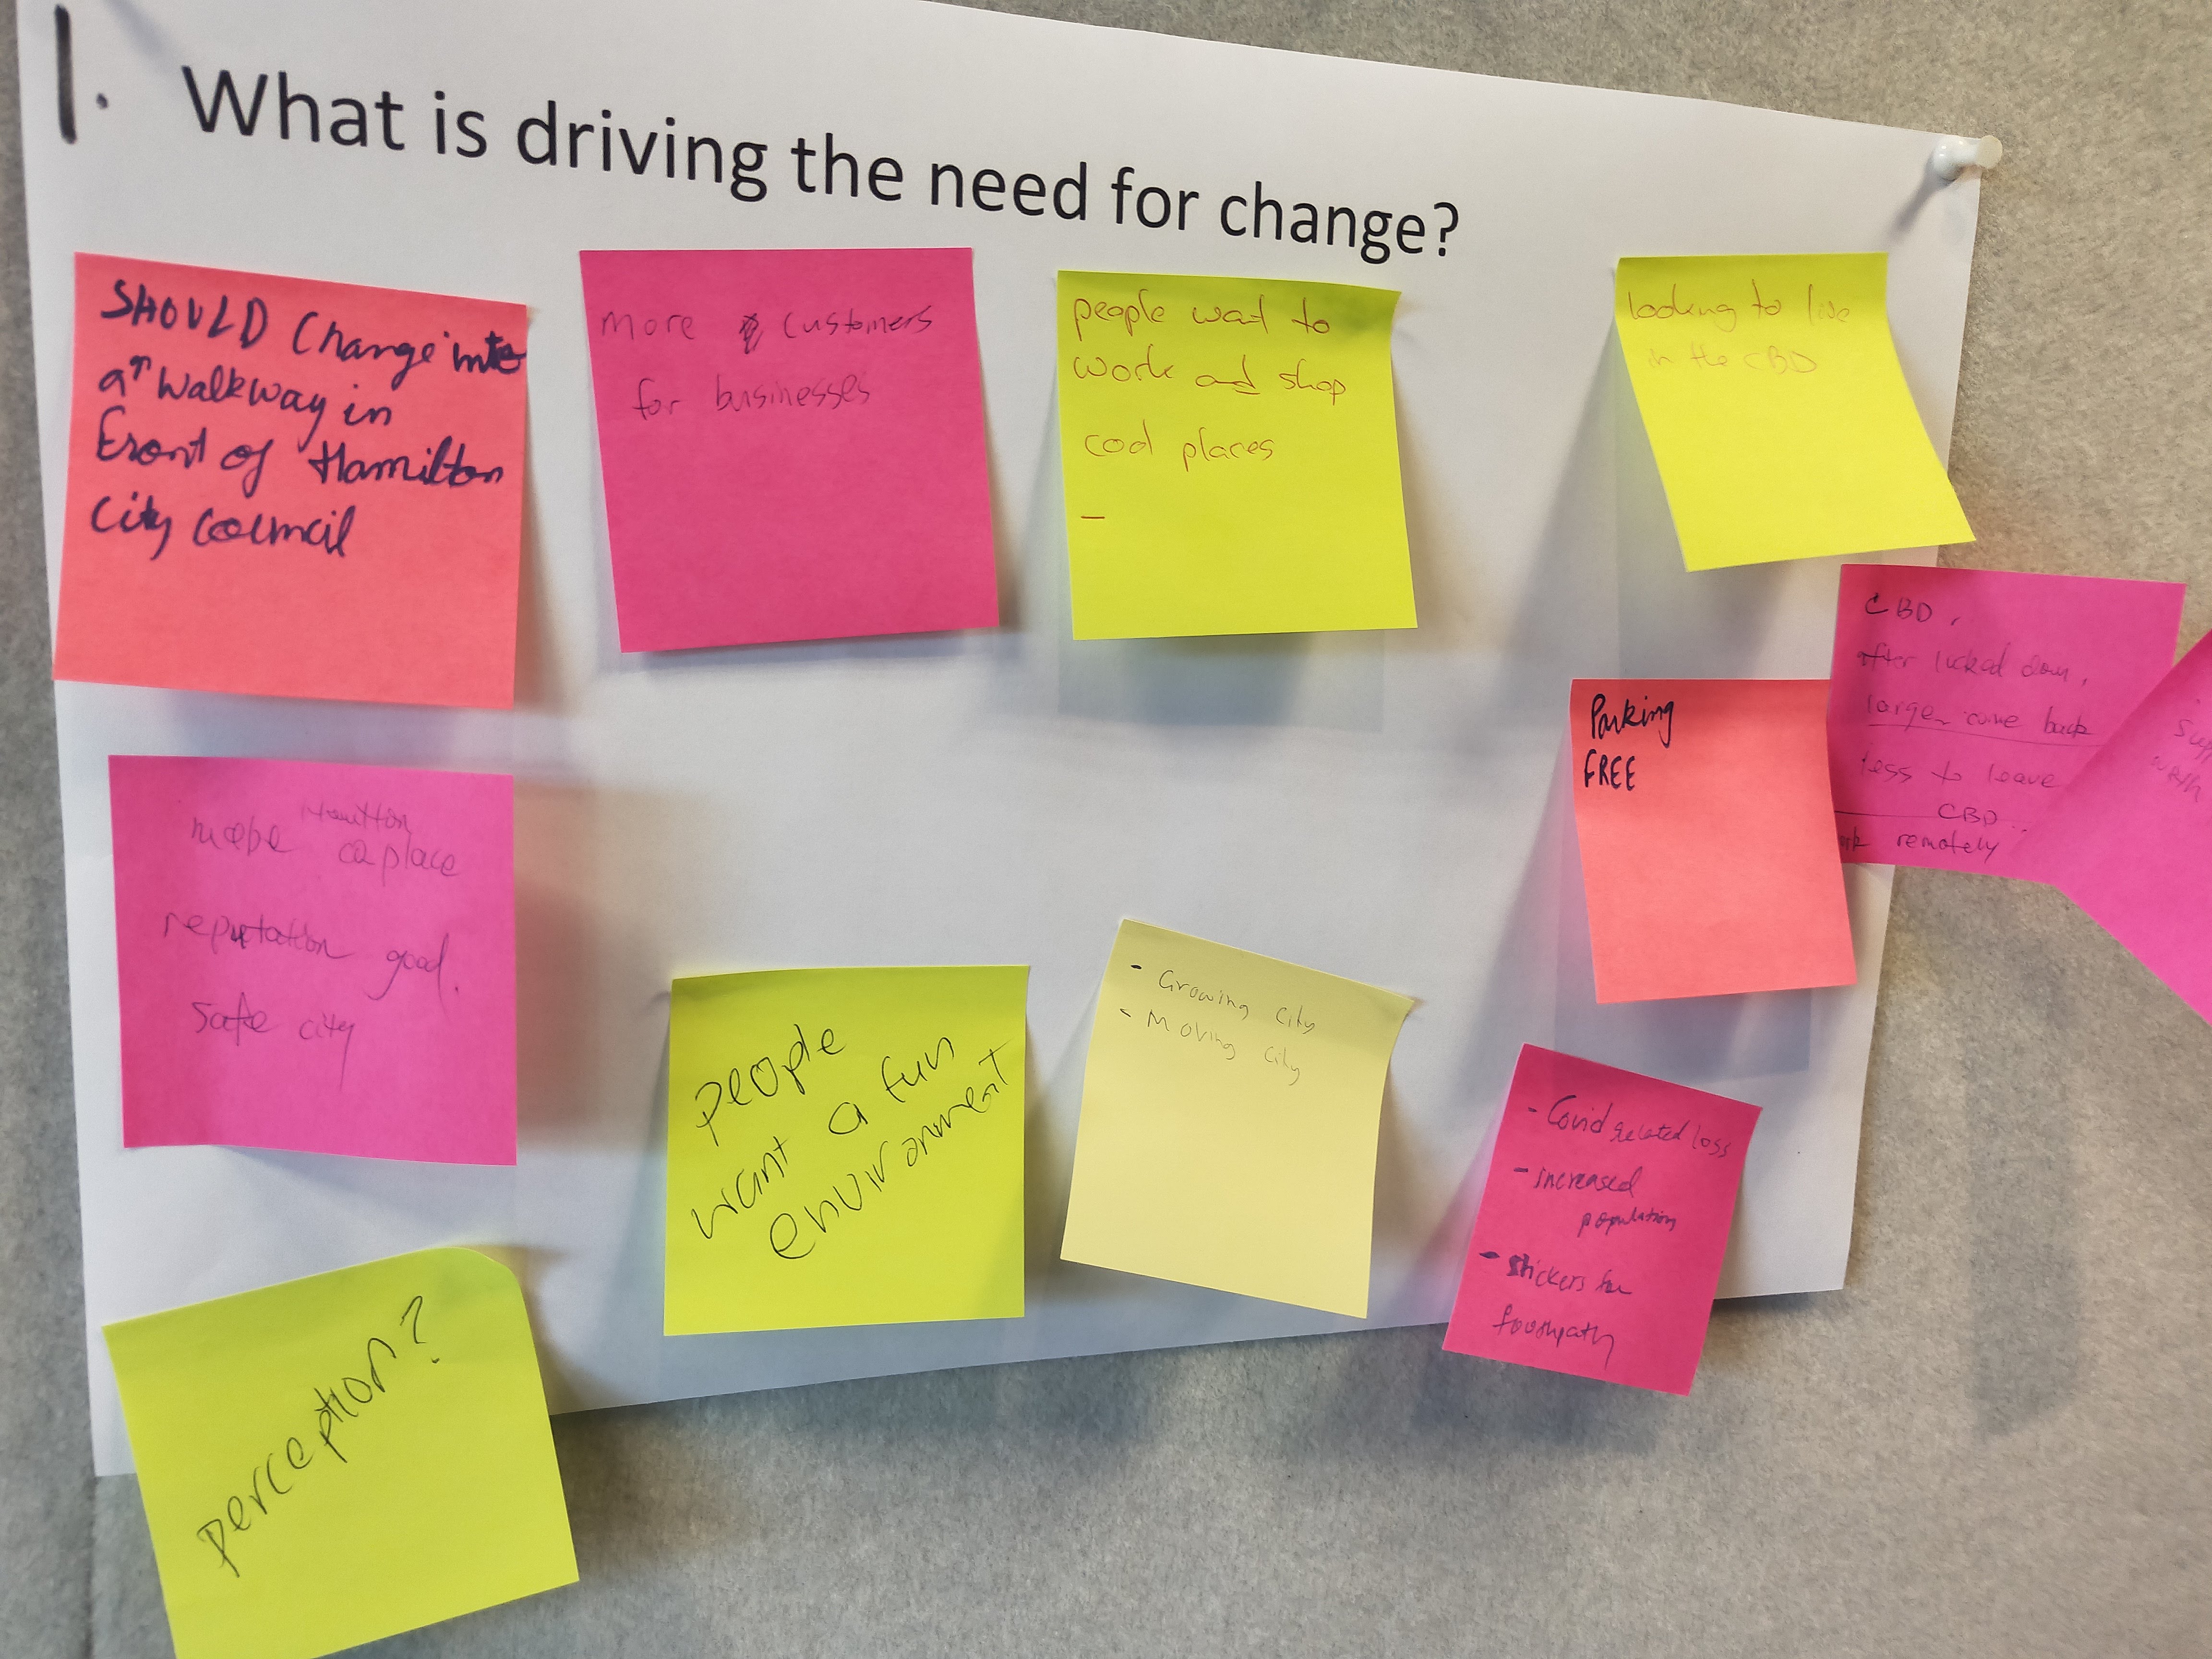 1. What is driving the need for change?
SHOULD Change into
a walkway in
Front of Hamilton
City Council
more customers
for businesses
people want to
work and shop
cool places
-
looking to live
in the CBD
CBD,
after locked down,
come back
to leave
CBD
remotely
Parking
FREE
Hamilton
make a place
reputation good.
safe city
people
want a fun
environment
- Growing City
- Moving City
- Covid related loss
- increased
population
- stickers for
perception?